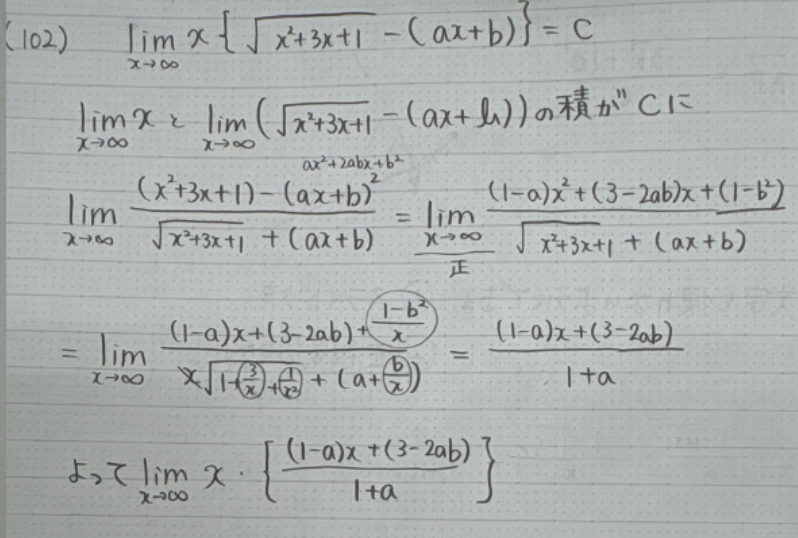 (102) lim x→∞ x{√x²+3x+1 -(ax+b)} = C
lim x→∞ x と lim x→∞ (√x²+3x+1 -(ax+b))の積がCに
ax²+2abx+b²
lim x→∞ (x²+3x+1)-(ax+b)² / √x²+3x+1 +(ax+b) = lim x→∞ (1-a)x²+(3-2ab)x+(1-b²) / √x²+3x+1 +(ax+b)
正
= lim x→∞ (1-a)x+(3-2ab)+ 1-b²/x / x√1+3/x+1/x² +(a+b/x) = (1-a)x+(3-2ab) / 1+a
よって lim x→∞ x・[(1-a)x+(3-2ab) / 1+a]